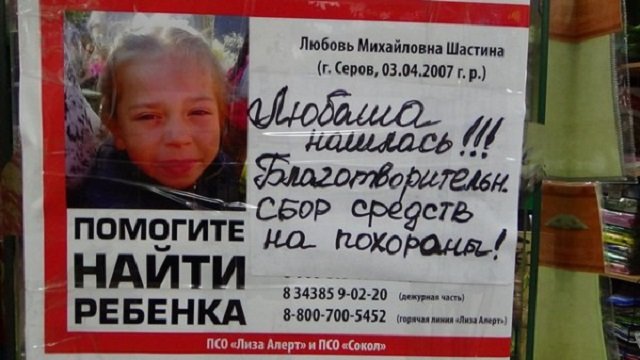 Любовь Михайловна Шастина
(г. Серов, 03.04.2007 г. р.)
Любаша
нашлась!!!
Благотворительн.
сбор средств
на похораны!
ПОМОГИТЕ
НАЙТИ
РЕБЕНКА
8 34385 9-02-20 (дежурная часть)
8-800-700-5452 (горячая линия «Лиза Алерт»)
ПСО «Лиза Алерт» и ПСО «Сокол»